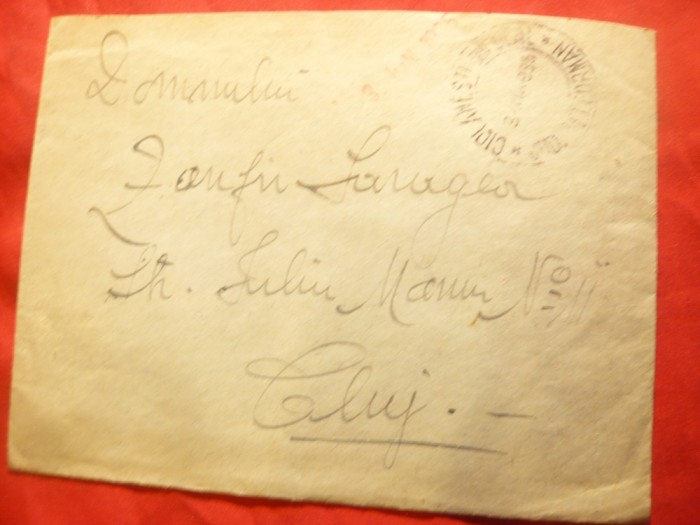 Domnului
Zamfir Saragea
Str. Iuliu Maniu No 11
Cluj. —
CIOLANESTI
TELEORMAN